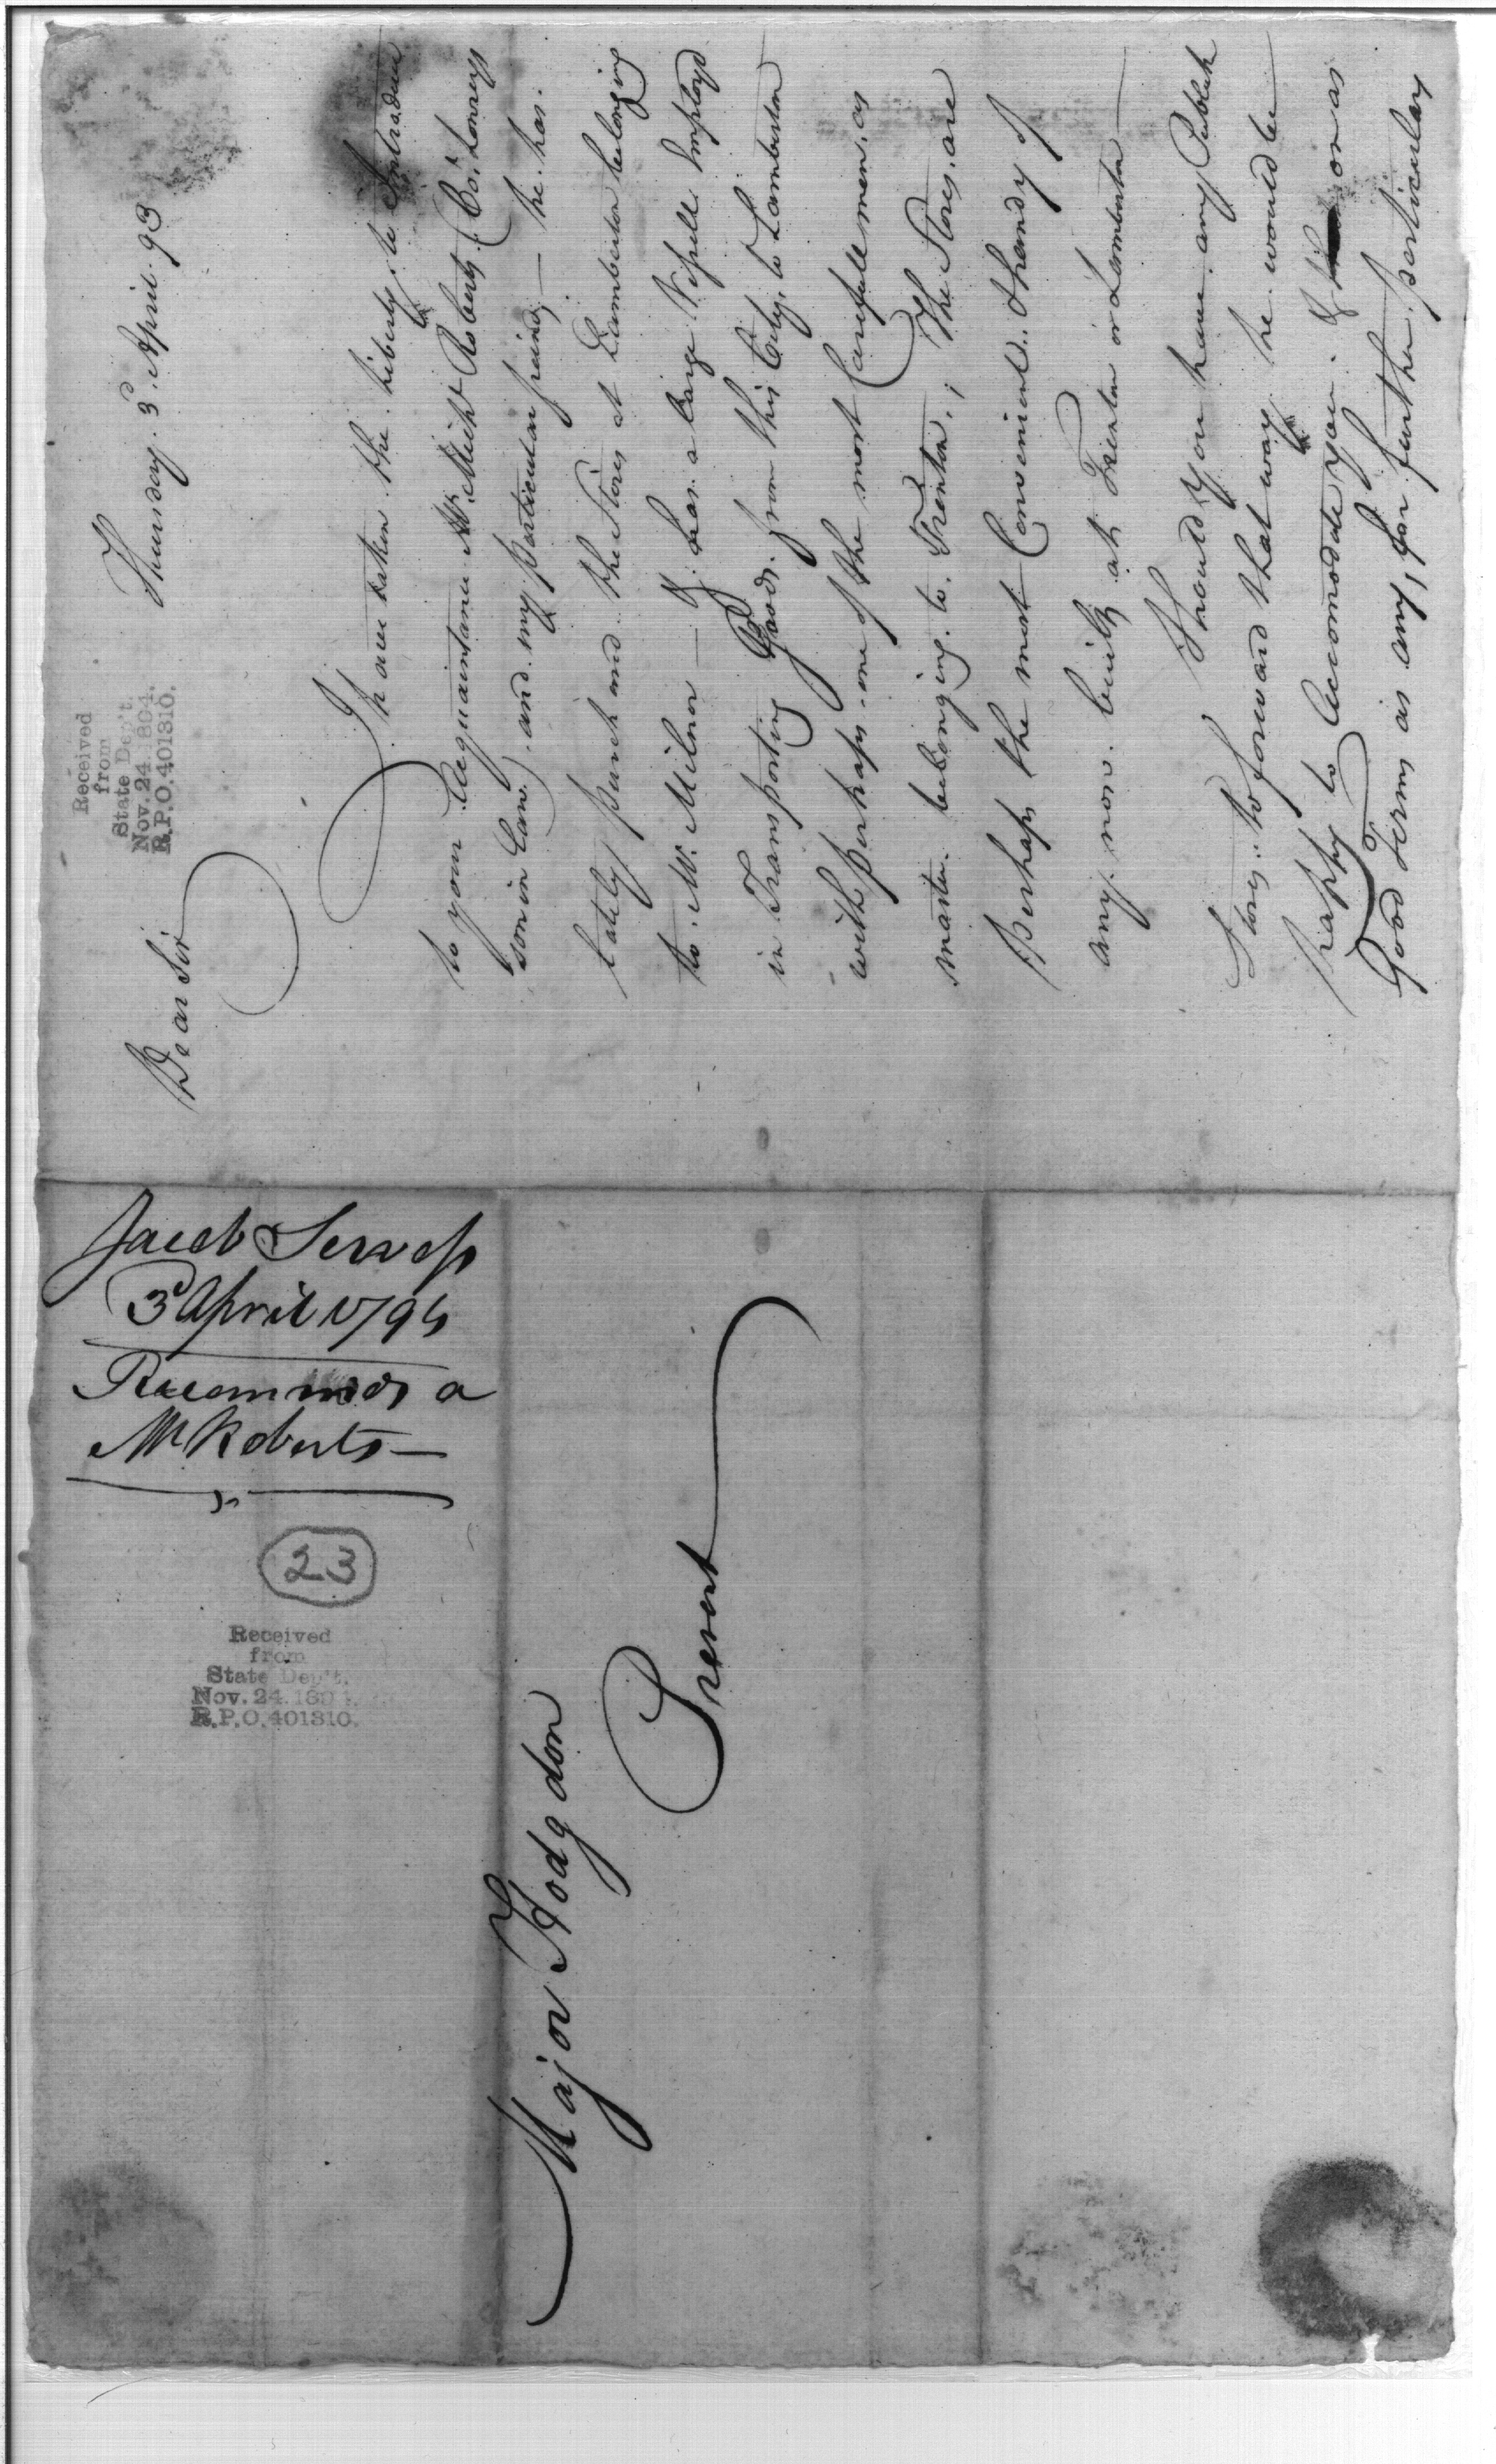 Received
from
State Dep't.
Nov. 24. 1894.
R.P.O. 401310.
Thursday. 3d. April. 93
Dear Sir
I have taken the liberty, to Introduce
to your Acquaintance Mr. Michl Roberts, (Col. Lowreys
son in Law.) and my particular friend, — he has.
lately purch and the Stores at Lamberton belonging
to. Mr. Milnor — & has. a large Vessell Employd
in Transporting Goods. from this City, to Lamberton
with perhaps. one of the most Carefull men, as
master belonging. to. Trenton. ; The Stores. are
perhaps the most Convenient. & handy of
any. now. built, at Trenton or Lamberton —
Should You have any Publick
Stores. to forward that way, he would be
happy to Accomodate you. & on as
Good Terms as any, for further particulars
Jacob
3d April 179
Recommends a
Mr Roberts —
23
Received
from
State Dep't.
Nov. 24. 1894.
R.P.O. 401310.
Major Hodgdon
Present